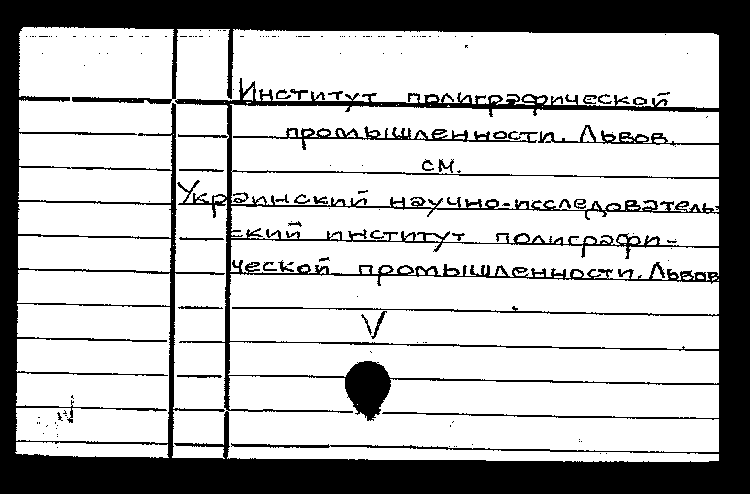 Институт полиграфической
промышленности. Львов.
см.
Украинский научно-исследователь-
ский институт полиграфи-
ческой промышленности. Львов
V